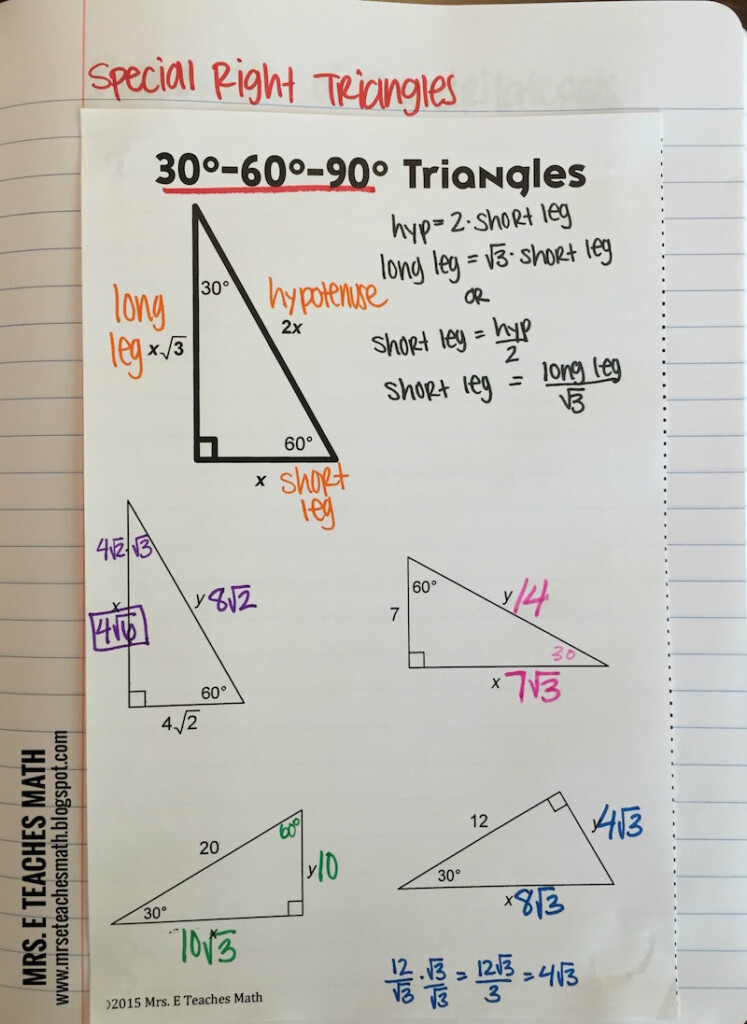 Special Right Triangles
30°-60°-90° Triangles
hyp = 2 · short leg
long leg = √3 · short leg
OR
short leg = hyp/2
short leg = long leg/√3
30°
long
leg x√3
hypotenuse
2x
60°
x short
leg
4√2 · √3
x
4√6
y 8√2
60°
4√2
60°
7
y 14
30
x 7√3
20
60°
y 10
30°
x
10√3
12
y 4√3
30°
x 8√3
12/√3 · √3/√3 = 12√3/3 = 4√3
©2015 Mrs. E Teaches Math
MRS. E TEACHES MATH
www.mrseteachesmath.blogspot.com